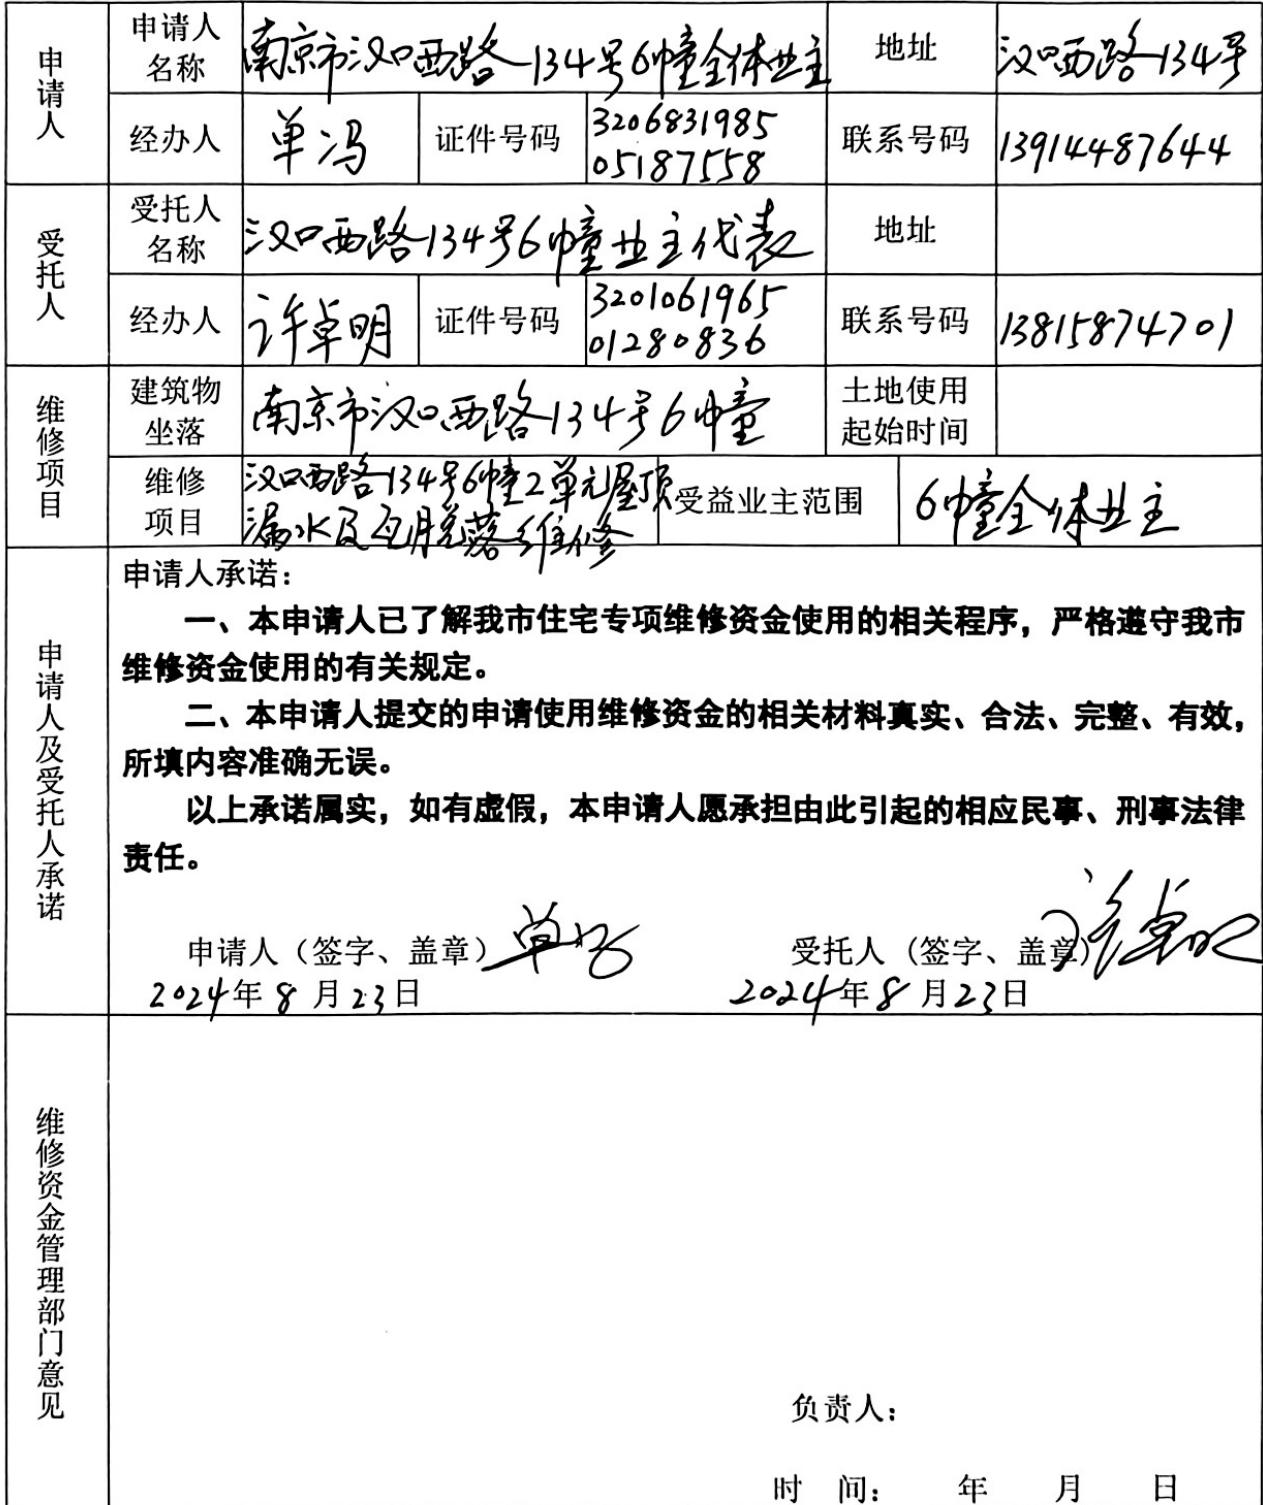 申请人
申请人名称
南京市汉口西路134号6幢全体业主
地址
汉口西路134号
经办人
单冯
证件号码
3206831985
05187558
联系号码
13914487644
受托人
受托人名称
汉口西路134号6幢业主代表
地址
经办人
许卓明
证件号码
3201061965
01280836
联系号码
13815874701
维修项目
建筑物坐落
南京市汉口西路134号6幢
土地使用起始时间
维修项目
汉口西路134号6幢2单元屋顶
漏水及瓦脱落维修
受益业主范围
6幢全体业主
申请人及受托人承诺
申请人承诺：
一、本申请人已了解我市住宅专项维修资金使用的相关程序，严格遵守我市
维修资金使用的有关规定。
二、本申请人提交的申请使用维修资金的相关材料真实、合法、完整、有效，
所填内容准确无误。
以上承诺属实，如有虚假，本申请人愿承担由此引起的相应民事、刑事法律
责任。
申请人（签字、盖章）单冯
受托人（签字、盖章）许卓明
2024年8月23日
2024年8月23日
维修资金管理部门意见
负责人：
时 间： 年 月 日